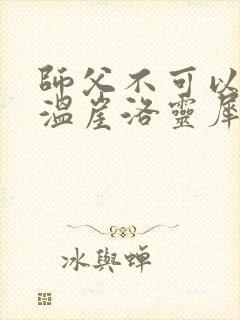 師父不可以
溫崖洛靈犀
冰與蟬